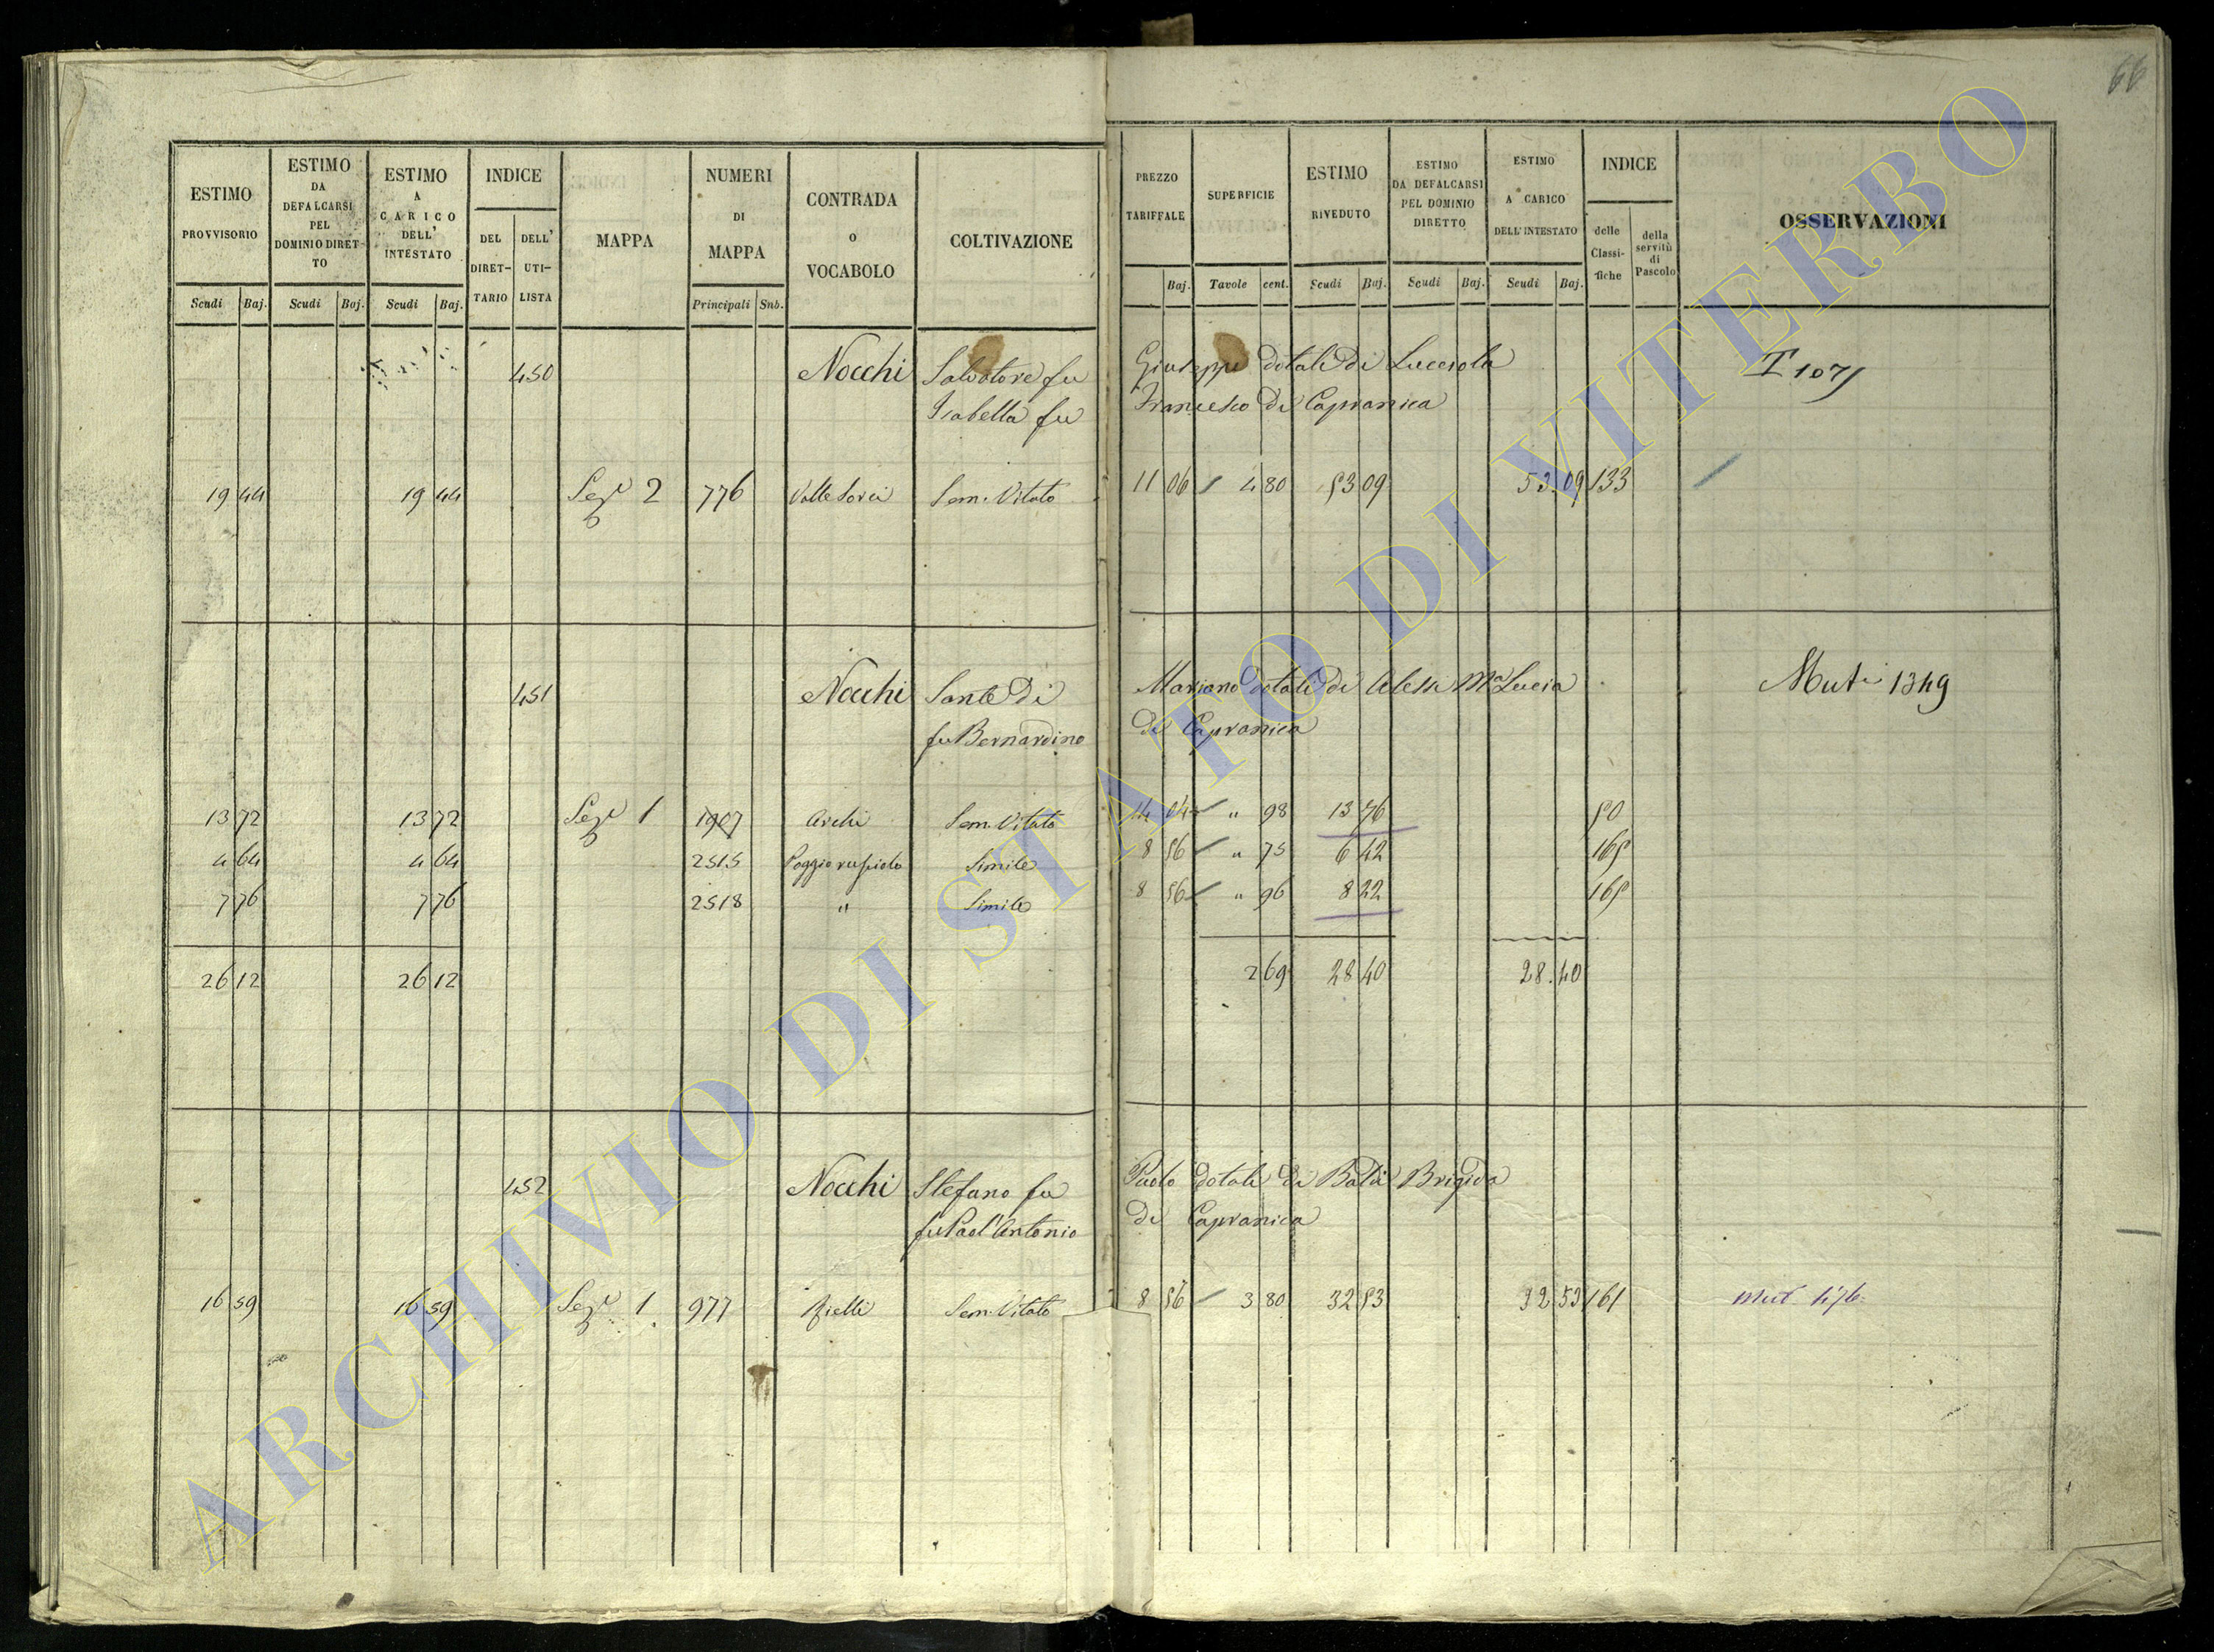 66
ESTIMO PROVVISORIO
ESTIMO DA DEFALCARSI PEL DOMINIO DIRETTO
ESTIMO A CARICO DELL' INTESTATO
INDICE
DEL DIRET-TARIO
DELL' UTI-LISTA
MAPPA
NUMERI DI MAPPA
CONTRADA o VOCABOLO
COLTIVAZIONE
PREZZO TARIFFALE
SUPERFICIE
ESTIMO RIVEDUTO
ESTIMO DA DEFALCARSI PEL DOMINIO DIRETTO
ESTIMO A CARICO DELL' INTESTATO
INDICE
delle Classi-fiche
della servitù di Pascolo
OSSERVAZIONI
Scudi Baj. Scudi Baj. Scudi Baj. Principali Sub. Baj. Tavole cent. Scudi Baj. Scudi Baj. Scudi Baj.
450 Nocchi Salvatore fu Giuseppe dotali di Lucciola T 107
Isabella fu Francesco di Capranica
19 44 19 44 Sez. 2 776 Valle Sorci Sem. Vitato 11 06 4 80 53 09 53.09 133
451 Nocchi Sante di Mariano dotali di Alessi Ma Lucia Mut. 1349
fu Bernardino di Capranica
13 72 13 72 Sez. 1 1907 Archi Sem. Vitato 14 04 " 98 13 76 50
4 64 4 64 2515 Simile 8 56 " 75 6 42 165
7 76 7 76 2518 " Simile 8 56 " 96 8 22 165
26 12 26 12 2 69 28 40 28.40
452 Nocchi Stefano fu Paolo dotali di Brigida
fu Paol'Antonio di Capranica
16 59 16 59 Sez. 1 977 Sem. Vitato 8 56 3 80 32 53 32 53 161 Mut 476
ARCHIVIO DI STATO DI VITERBO